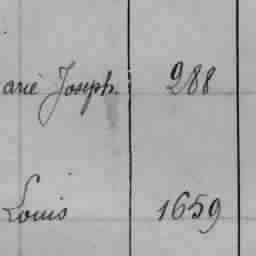 arie Joseph. 288
Louis 1659